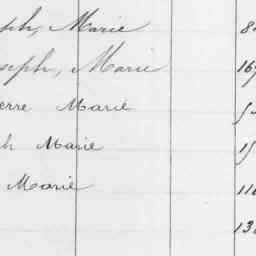 ph, Marie 8
seph, Marie 16
erre Marie
h Marie 15
Marie 11
13